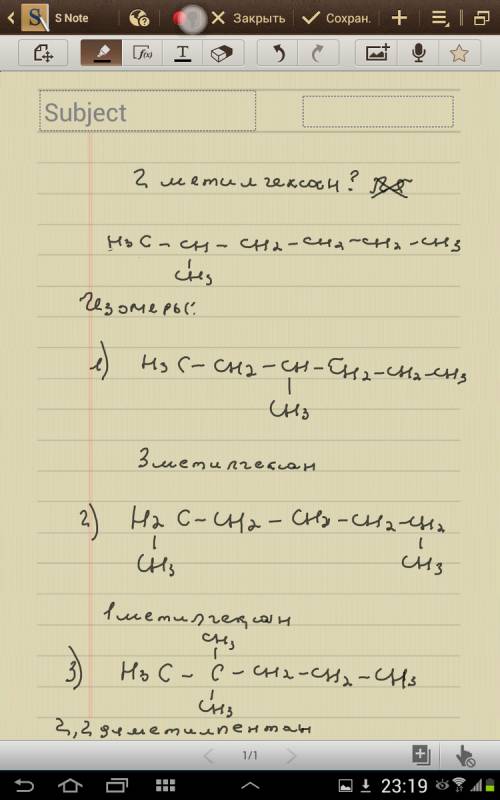 S Note
Закрыть
Сохран.
f(x)
T
Subject
2 метилгексан?
H3C – CH – CH2 – CH2 – CH2 – CH3
CH3
Изомеры:
1) H3C – CH2 – CH – CH2 – CH2 – CH3
CH3
3 метилгексан
2) H2C – CH2 – CH2 – CH2 – CH2
CH3 CH3
1 метилгексан
CH3
3) H3C – C – CH2 – CH2 – CH3
CH3
2,2 диметилпентан
1/1
23:19